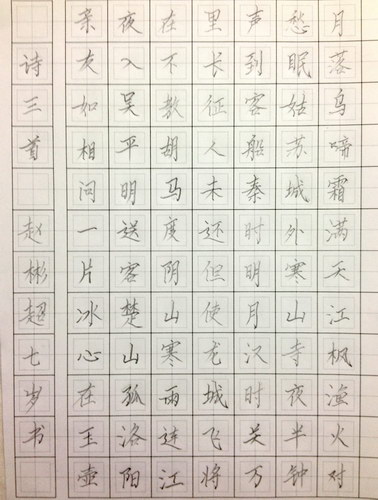 月落乌啼霜满天江枫渔火对
愁眠姑苏城外寒山寺夜半钟
声到客船秦时明月汉时关万
里长征人未还但使龙城飞将
在不教胡马度阴山寒雨连江
夜入吴平明送客楚山孤洛阳
亲友如相问一片冰心在玉壶
诗三首 赵彬超七岁书